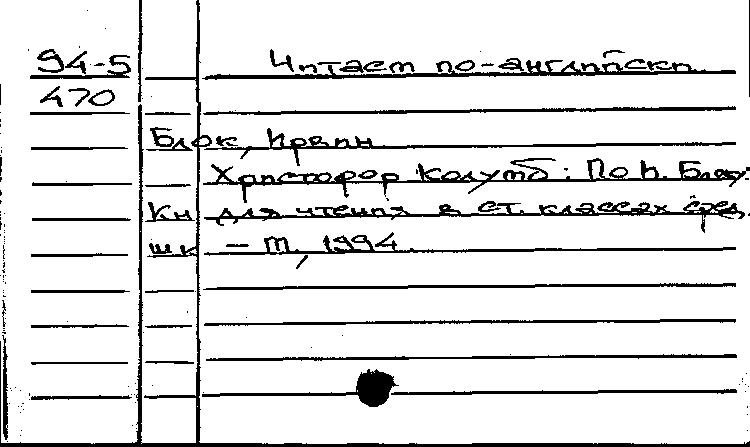 94-5 Читаем по-английски.
470
Блок, Ирвин
Христофор Колумб: По И. Блоку:
Кн для чтения в ст. классах сред.
шк – Т, 1994.